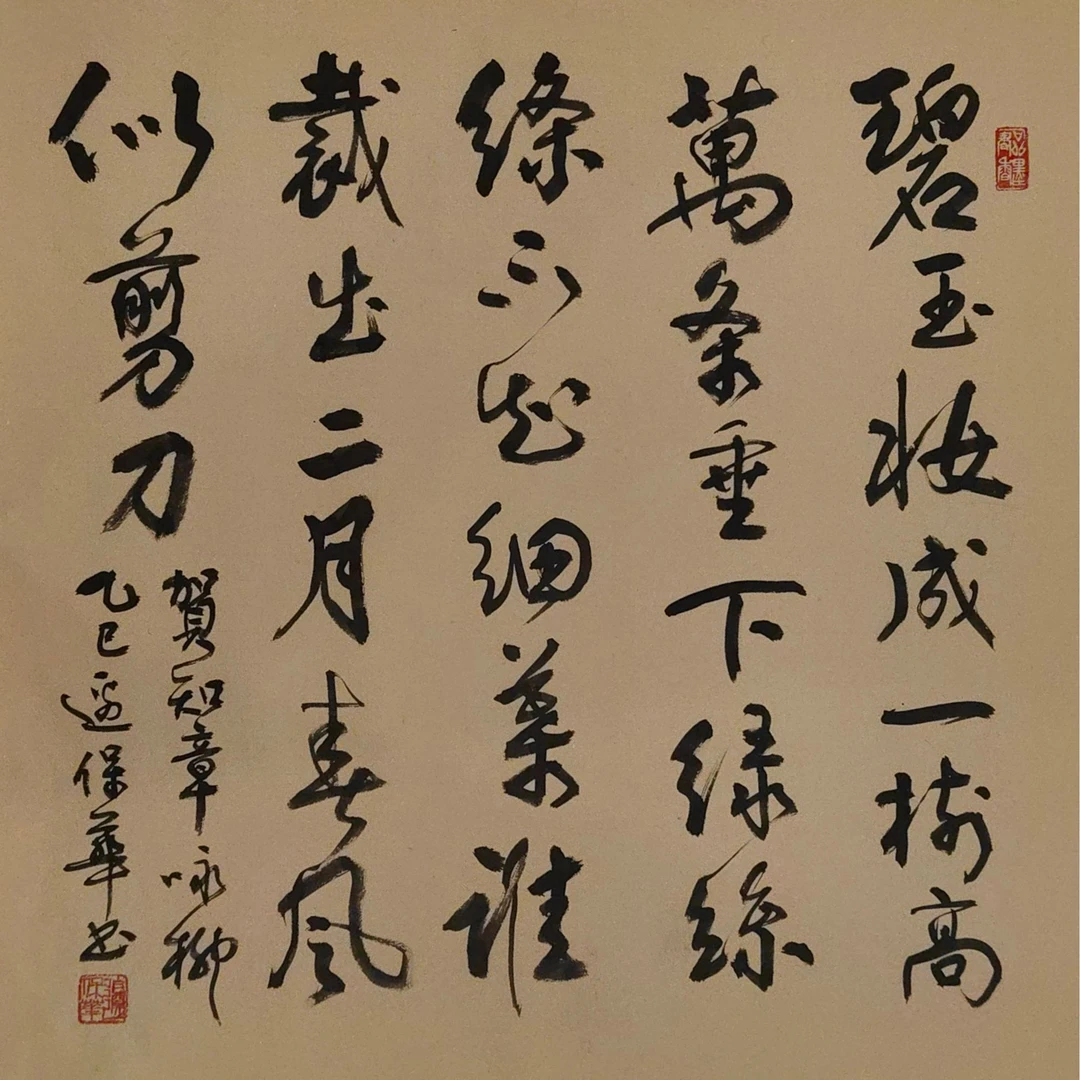 碧玉妝成一樹高
萬条垂下绿絲
絛不知細葉誰
裁出二月春風
似剪刀
賀知章咏柳
乙巳邊保華书